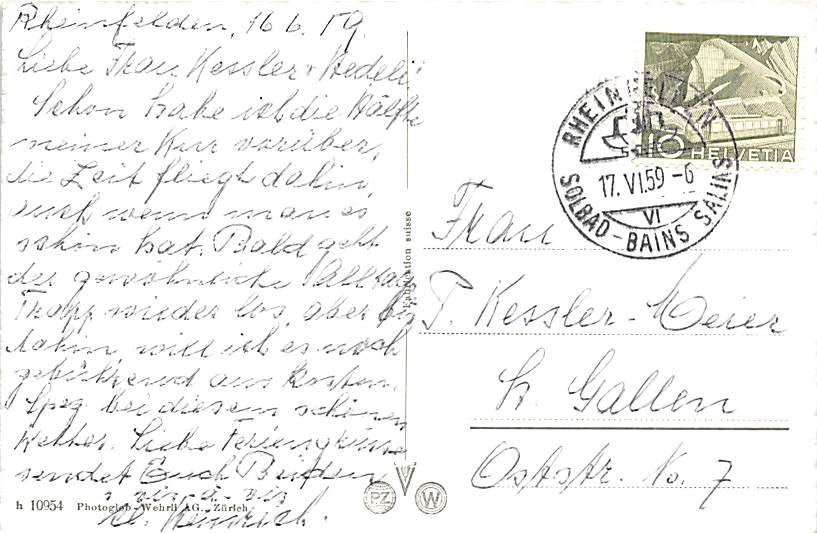 Rheinfelden, 16.6.59
Liebe Frau Kessler + Hedeli!
Schon habe ich die Hälfte
meiner Kur vorüber,
die Zeit fliegt dahin,
auch wenn man es
schön hat. Bald geht
der gewöhnliche Alltags
Trapp wieder los, aber bis
dahin, will ich es noch
gebührend auskosten,
bei diesem schönen
Wetter. Liebe Feriengrüsse
sendet Euch Beiden
vis-à-vis
Fabrication suisse
h 10954 Photoglob-Wehrli AG., Zürich
PZ W
HELVETIA
RHEINFELDEN
17.VI.59-6
VI
SOLBAD-BAINS SALINS
Frau
T. Kessler-Meier
St. Gallen
Oststr. No. 7